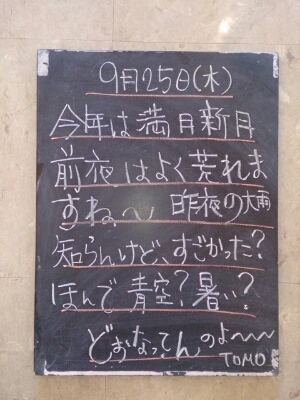 9月25日(木)
今年は満月新月
前夜はよく荒れま
すね〜 昨夜の大雨
知らんけど、すごかった?
ほんで青空?暑い?
どおなってんのよ〜〜
TOMO